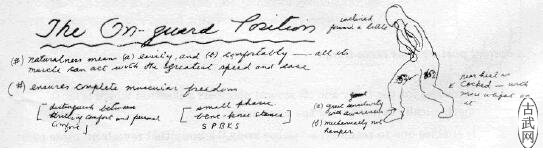 The On-guard Position
inclined
forward a little
(#) naturalness means (a) easily, and (b) comfortably — all the
muscle can act with the greatest speed and ease
(#) ensures complete muscular freedom
[ distinguish between
comfort and personal
comfort ]
[ small phasic
bent-knee stance ]
S P B K S
(a) great sensitivity
with awareness
(b) mechanically not
hamper
rear heel is
cocked — with
more weight on
it
古武网